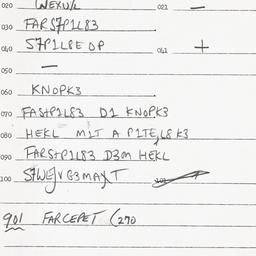 020 WEXU/L 021 —
030 FARS7P1L83
040 S7P1L8E DP 041 +
050 —
060 KNOPK3
070 FAS+P1L83 D1 KNOPK3
080 HEKL M1T A P1TE,L8 K3
090 FARS+P1L83 D3M HEKL
100 101
901 FARCEPET (270